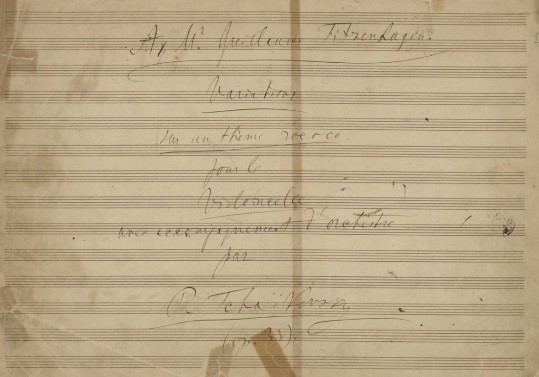 A Mr Guillaume Fitzenhagen.
Variations
sur un thème rococo
pour le
Violoncelle
avec accompagnement d'orchestre
par
P. Tchaïkovsky
(op. 33).